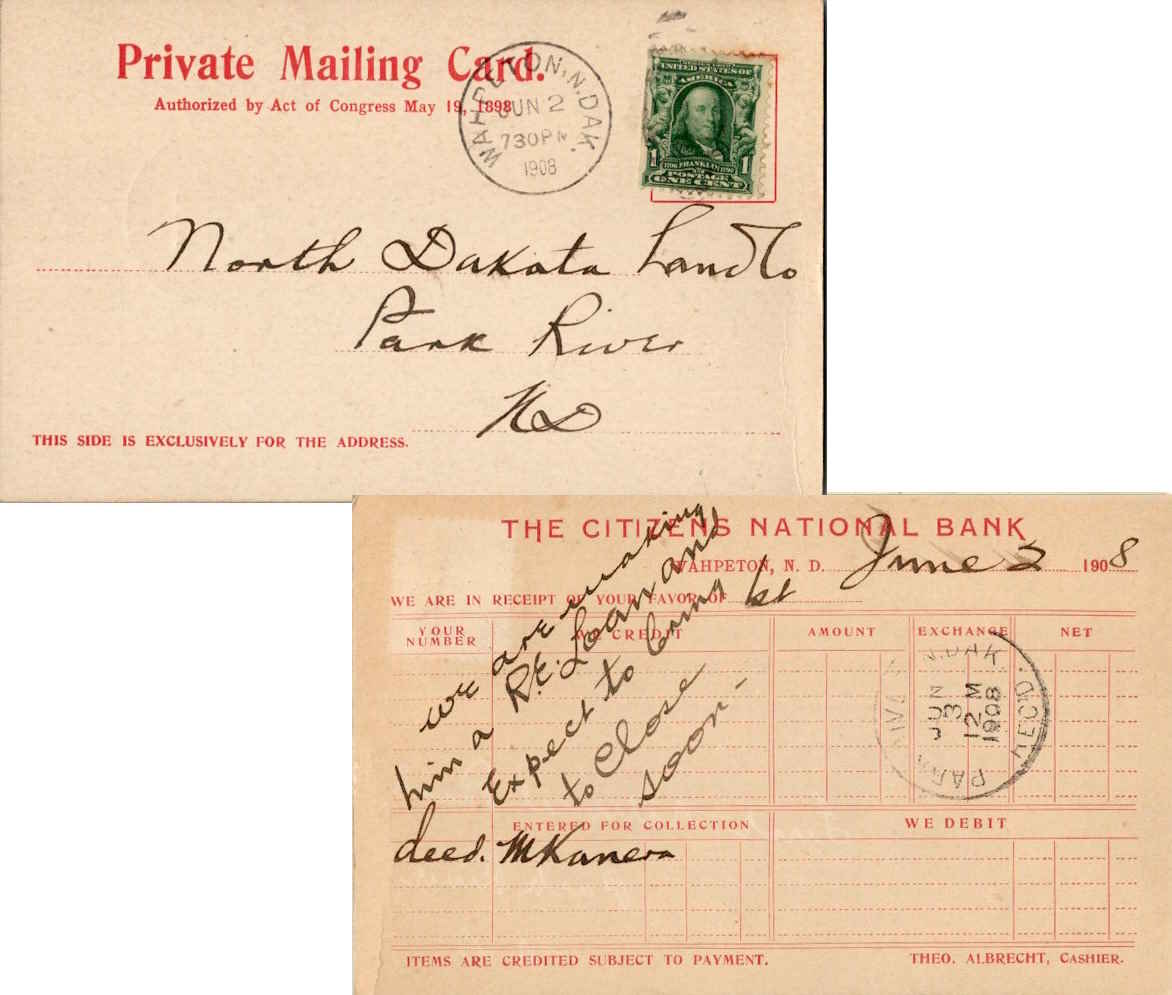 Private Mailing Card.
Authorized by Act of Congress May 19, 1898
WAHPETON, N. DAK.
JUN 2
730PM
1908
UNITED STATES OF
AMERICA
1 1706 FRANKLIN 1790 1
POSTAGE
ONE CENT
North Dakota Land Co
Park River
ND
THIS SIDE IS EXCLUSIVELY FOR THE ADDRESS.
THE CITIZENS NATIONAL BANK
WAHPETON, N. D. June 2 1908
WE ARE IN RECEIPT OF YOUR FAVOR OF 1st
YOUR NUMBER WE CREDIT AMOUNT EXCHANGE NET
we are making
him a R.E. Loan and
Expect to bring
to Close
soon -
PARK RIVER N. DAK.
JUN
3
12 M
1908
REC'D.
ENTERED FOR COLLECTION WE DEBIT
deed.
ITEMS ARE CREDITED SUBJECT TO PAYMENT. THEO. ALBRECHT, CASHIER.